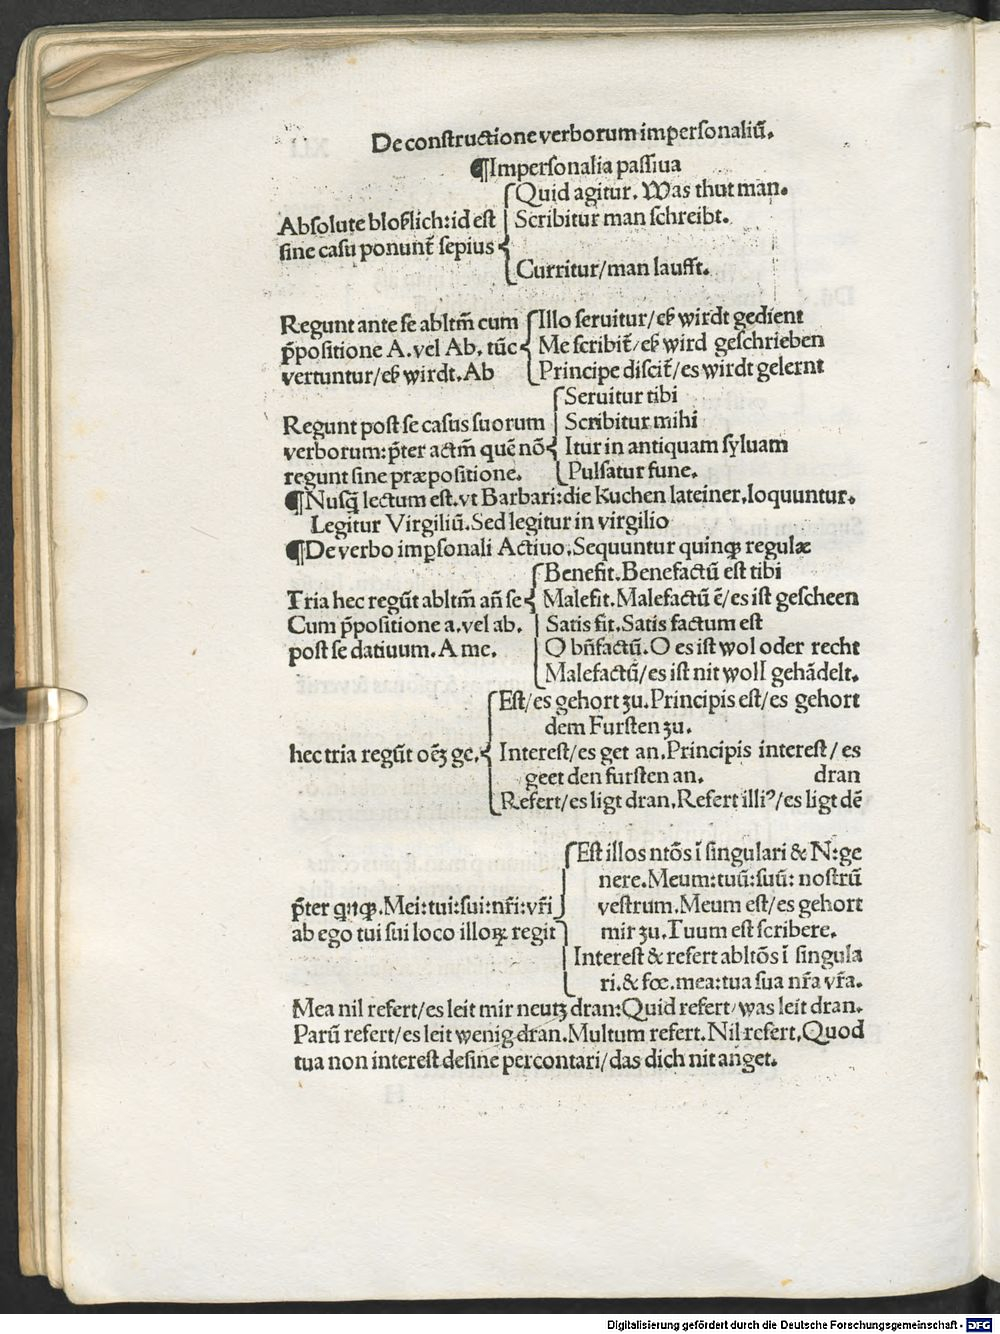 De constructione verborum impersonaliū.
¶Impersonalia passiua
Absolute bloßlich: id est
sine casu ponunt̃ sepius
Quid agitur. Was thut man.
Scribitur man schreibt.
Curritur/man laufft.
Regunt ante se abltm̃ cum
p̃positione A. vel Ab, tūc
vertuntur/eß wirdt. Ab
Illo seruitur/eß wirdt gedient
Me scribit̃/eß wird geschrieben
Principe discit̃/es wirdt gelernt
Regunt post se casus suorum
verborum: p̃ter actm̃ quē nō
regunt sine præpositione.
Seruitur tibi
Scribitur mihi
Itur in antiquam syluam
Pulsatur fune.
¶Nusq̃ lectum est. vt Barbari: die Kuchen lateiner, loquuntur.
Legitur Virgiliū. Sed legitur in virgilio
¶De verbo imꝑsonali Actiuo. Sequuntur quinqꝫ regulæ
Tria hec regūt abltm̃ añ se
Cum p̃positione a. vel ab.
post se datiuum. A me.
Benefit. Benefactū est tibi
Malefit. Malefactū ē/es ist gescheen
Satis fit. Satis factum est
O bñfactū. O es ist wol oder recht
Malefactū/es ist nit woll gehādelt.
hec tria regūt oēꝫ ge.
Est/es gehort zu. Principis est/es gehort
dem Fursten zu.
Interest/es get an. Principis interest/es
geet den fursten an. dran
Refert/es ligt dran. Refert illiꝰ/es ligt dē
p̃ter qnqꝫ. Mei: tui: sui: nr̃i: vr̃i
ab ego tui sui loco illoꝝ regit
Est illos ntōs ī singulari & N: ge
nere. Meum: tuū: suū: nostrū
vestrum. Meum est/es gehort
mir zu. Tuum est scribere.
Interest & refert abltōs ī singula
ri. & fœ. mea: tua sua nr̃a vr̃a.
Mea nil refert/es leit mir neutꝫ dran: Quid refert/was leit dran.
Parū refert/es leit wenig dran. Multum refert. Nil refert. Quod
tua non interest desine percontari/das dich nit anget.
Digitalisierung gefördert durch die Deutsche Forschungsgemeinschaft - DFG